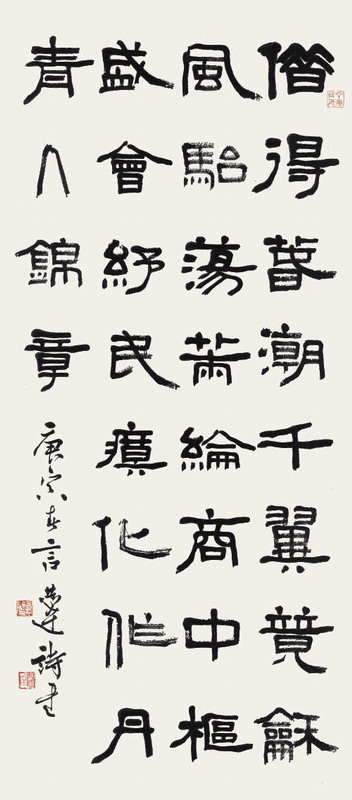 借得春潮千翼競龢
風駘蕩綸商中樞
盛會紓民瘼化作丹
青八錦章
庚寅春言恭達詩書